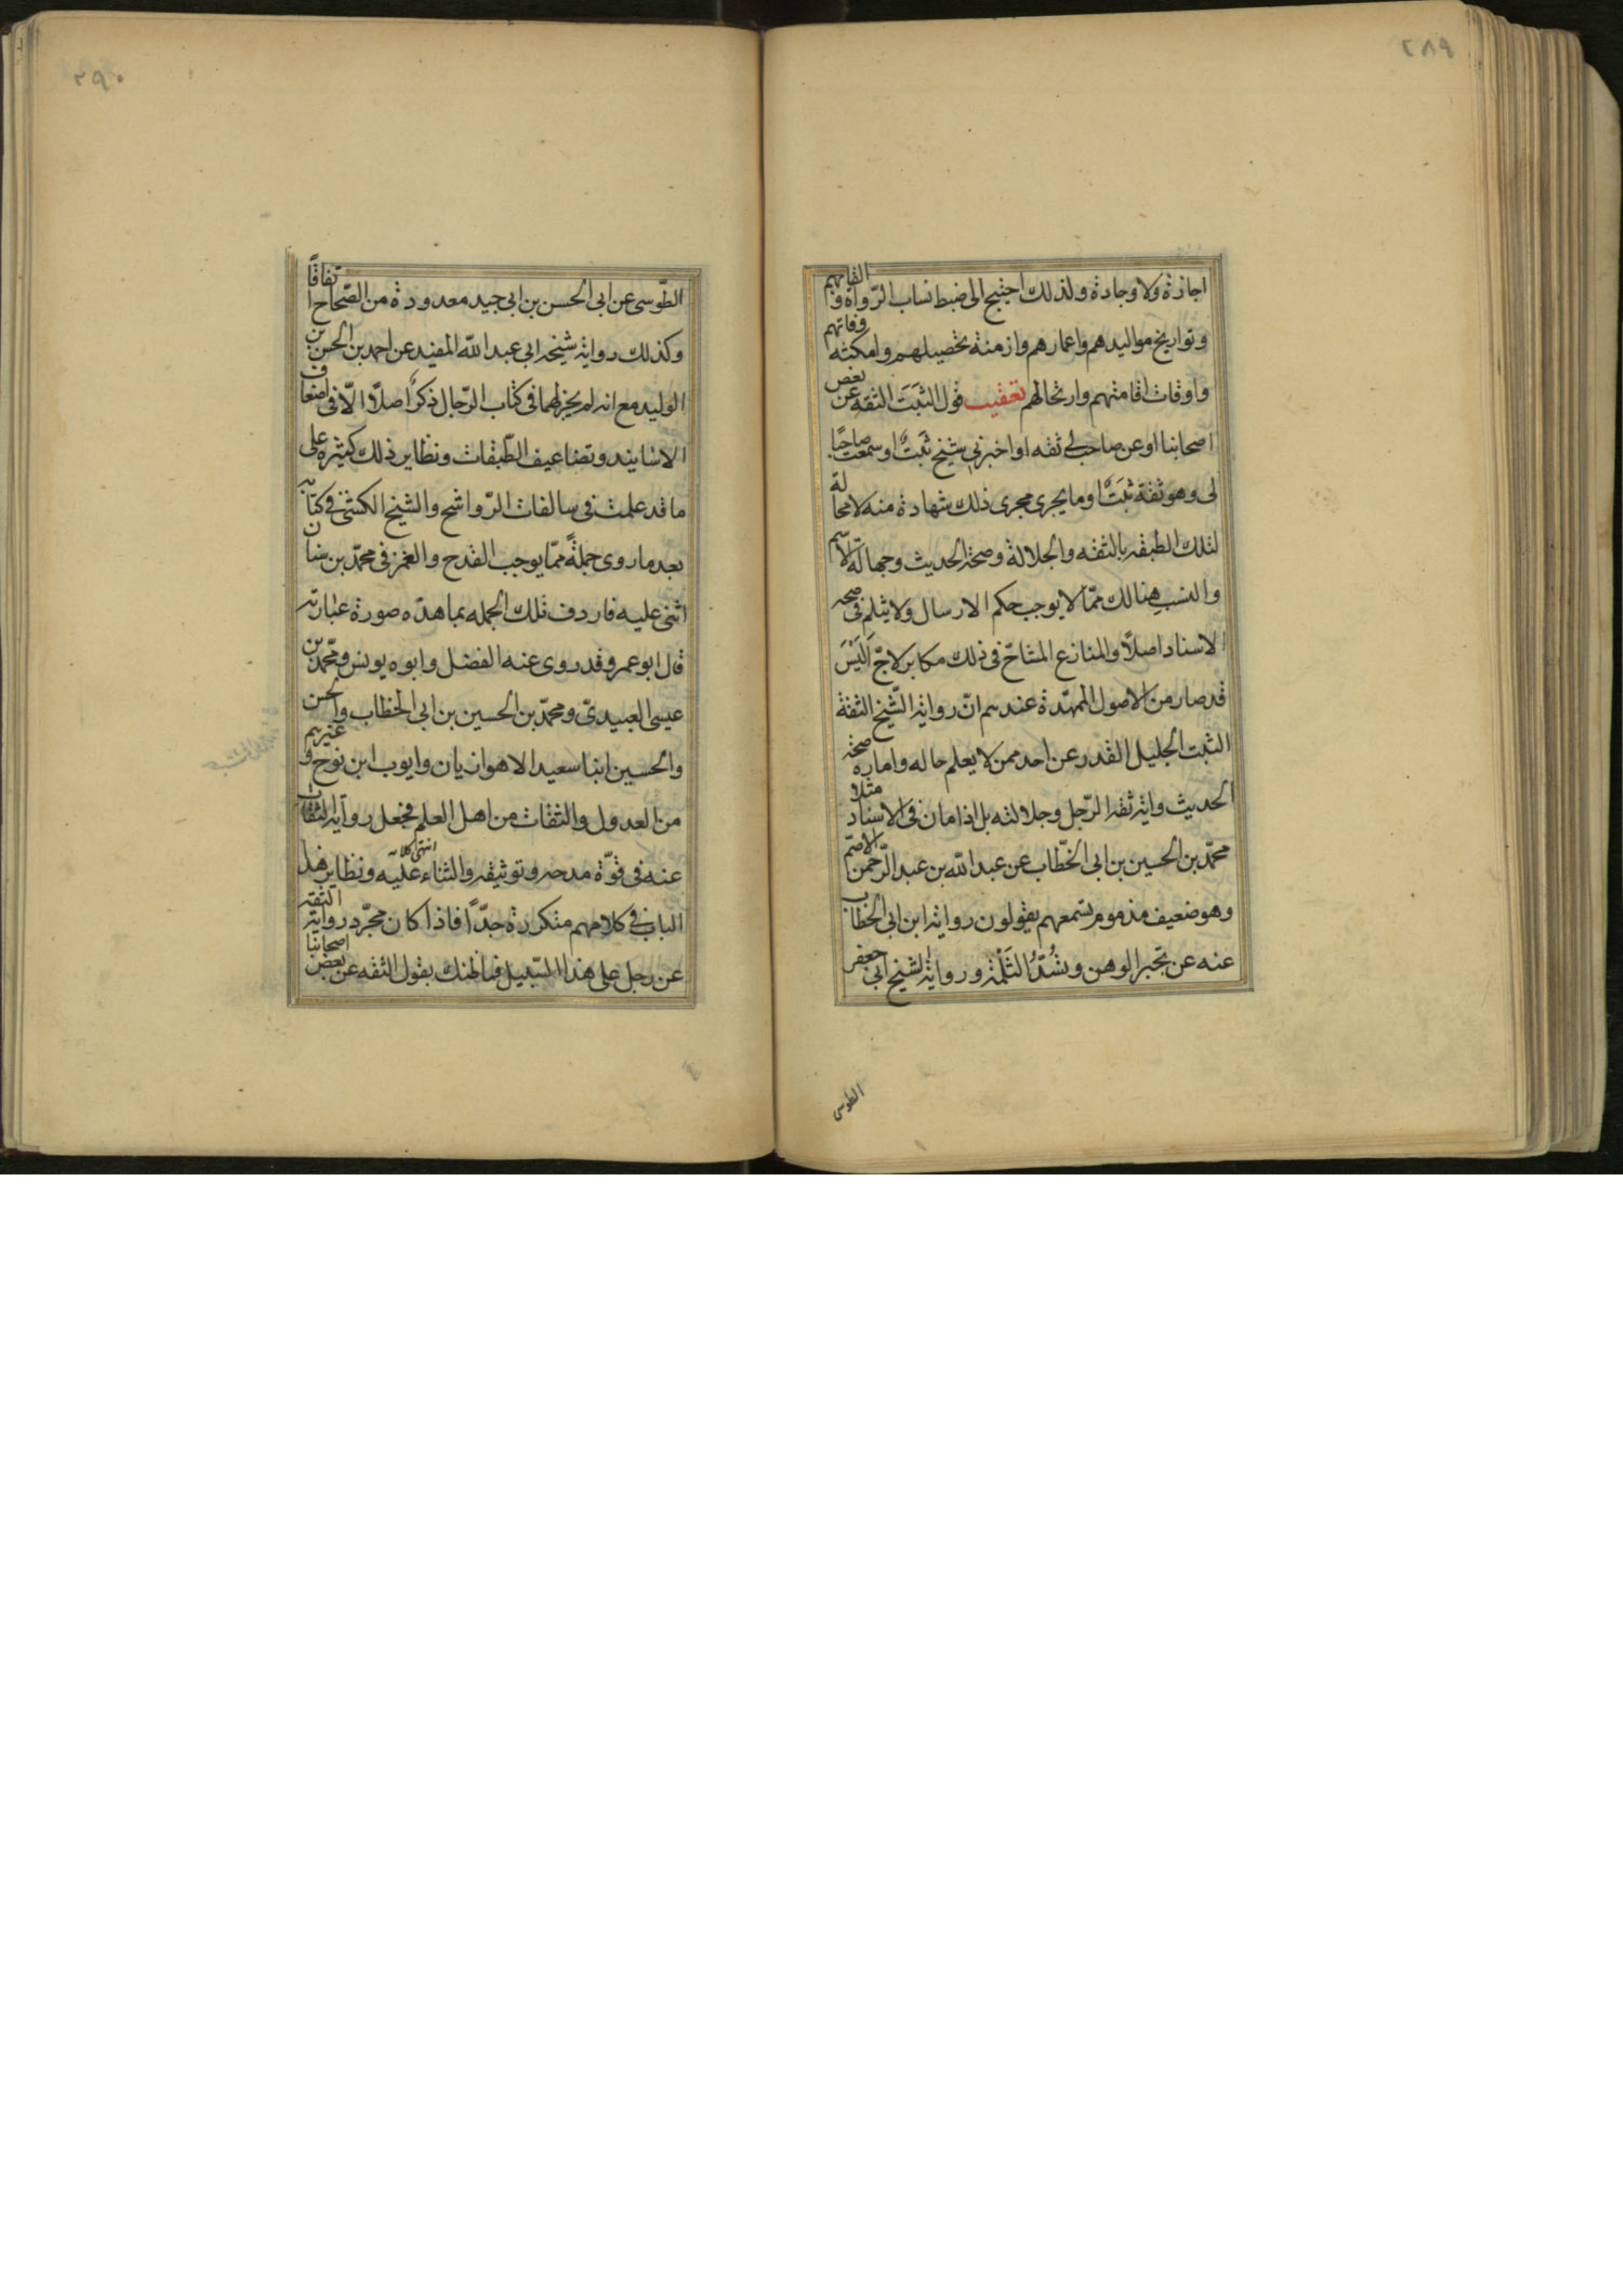 ٢٨٩
اجازة ولا وجادة ولذلك احتيج الى ضبط انساب الرواة والقابهم
وتواريخ مواليدهم واعمارهم وازمنة تحصيلهم وامكنته ووفاتهم
واوقات اقامتهم وارتحالهم تعقيب قول الثبَت الثقه عن بعض
اصحابنا او عن صاحب لى ثقه او اخبرنى شيخ ثبتٌ او سمعت صاحبًا
لى وهو ثقة ثبَتٌ او ما يجرى مجرى ذلك شهادة منه لا محالة
لتلك الطبقه بالثقه والجلالة وصحة الحديث وجهالة الاسم
والنسب هنالك ممّا لا يوجب حكم الارسال ولا يثلم فى صحه
الاسناد اصلاً والمنازع المشاحّ فى ذلك مكابر لاجّ اَلَيْسَ
قد صار من الاصول الممهّدة عندهم انّ رواية الشّيخ الثقة
الثبت الجليل القدر عن احد ممن لا يعلم حاله وامارة صحة
الحديث واية ثقه الرّجل وجلالته بل اذا مان فى الاسناد مثلا
محمّد بن الحسين بن ابى الخّطاب عن عبد الله بن عبد الرّحمن الاصمّ
وهو ضعيف مذموم تسمعهم يقولون رواية ابن ابى الخطاب
عنه عن تجبر الوهن وتَسُدُّ الثَلْمَة ورواية الشيخ ابى جعفر
الطوسى
٢٩٠
الطّوسى عن ابى الحسن بن ابى جيد معدودة من الصّحاح اتفاقًا
وكذلك رواية شيخه ابى عبد الله المفيد عن احمد بن الحسن بن
الوليد مع انه لم يجر لهما فى كتاب الرّجال ذكرٌ اصلاً الاّ فى اضعاف
الاسانيد وتضاعيف الطّبقات ونظاير ذلك كثيرة على
ما قد علمت فى سالفات الرّواشح والشيخ الكشى فى كتابه
بعد ما روى جملةً ممّا يوجب القدح والغمز فى محمّد بن سنان
اثنى عليه فاردف تلك الجمله بما هذه صورة عبارته
قال ابو عمرو قد روى عنه الفضل وابوه يونس ومحمّد بن
عيسى العبيدىّ ومحمّد بن الحسين بن ابى الخطاب والحسن
والحسين ابنا سعيد الاهوازيان وايوب ابن نوح وغيرهم
من العدول والثقات من اهل العلم فجعل رواية الثقات
عنه فى قوّة مدحه وتوثيقه والثناء عليه انتهى كلامه ونظاير هذا
الباب فى كلامهم متكررة جدّاً فاذا كان مجرّد رواية الثقه
عن رجل على هذا السّبيل فما ظنك بقول الثقه عن بعض اصحابنا